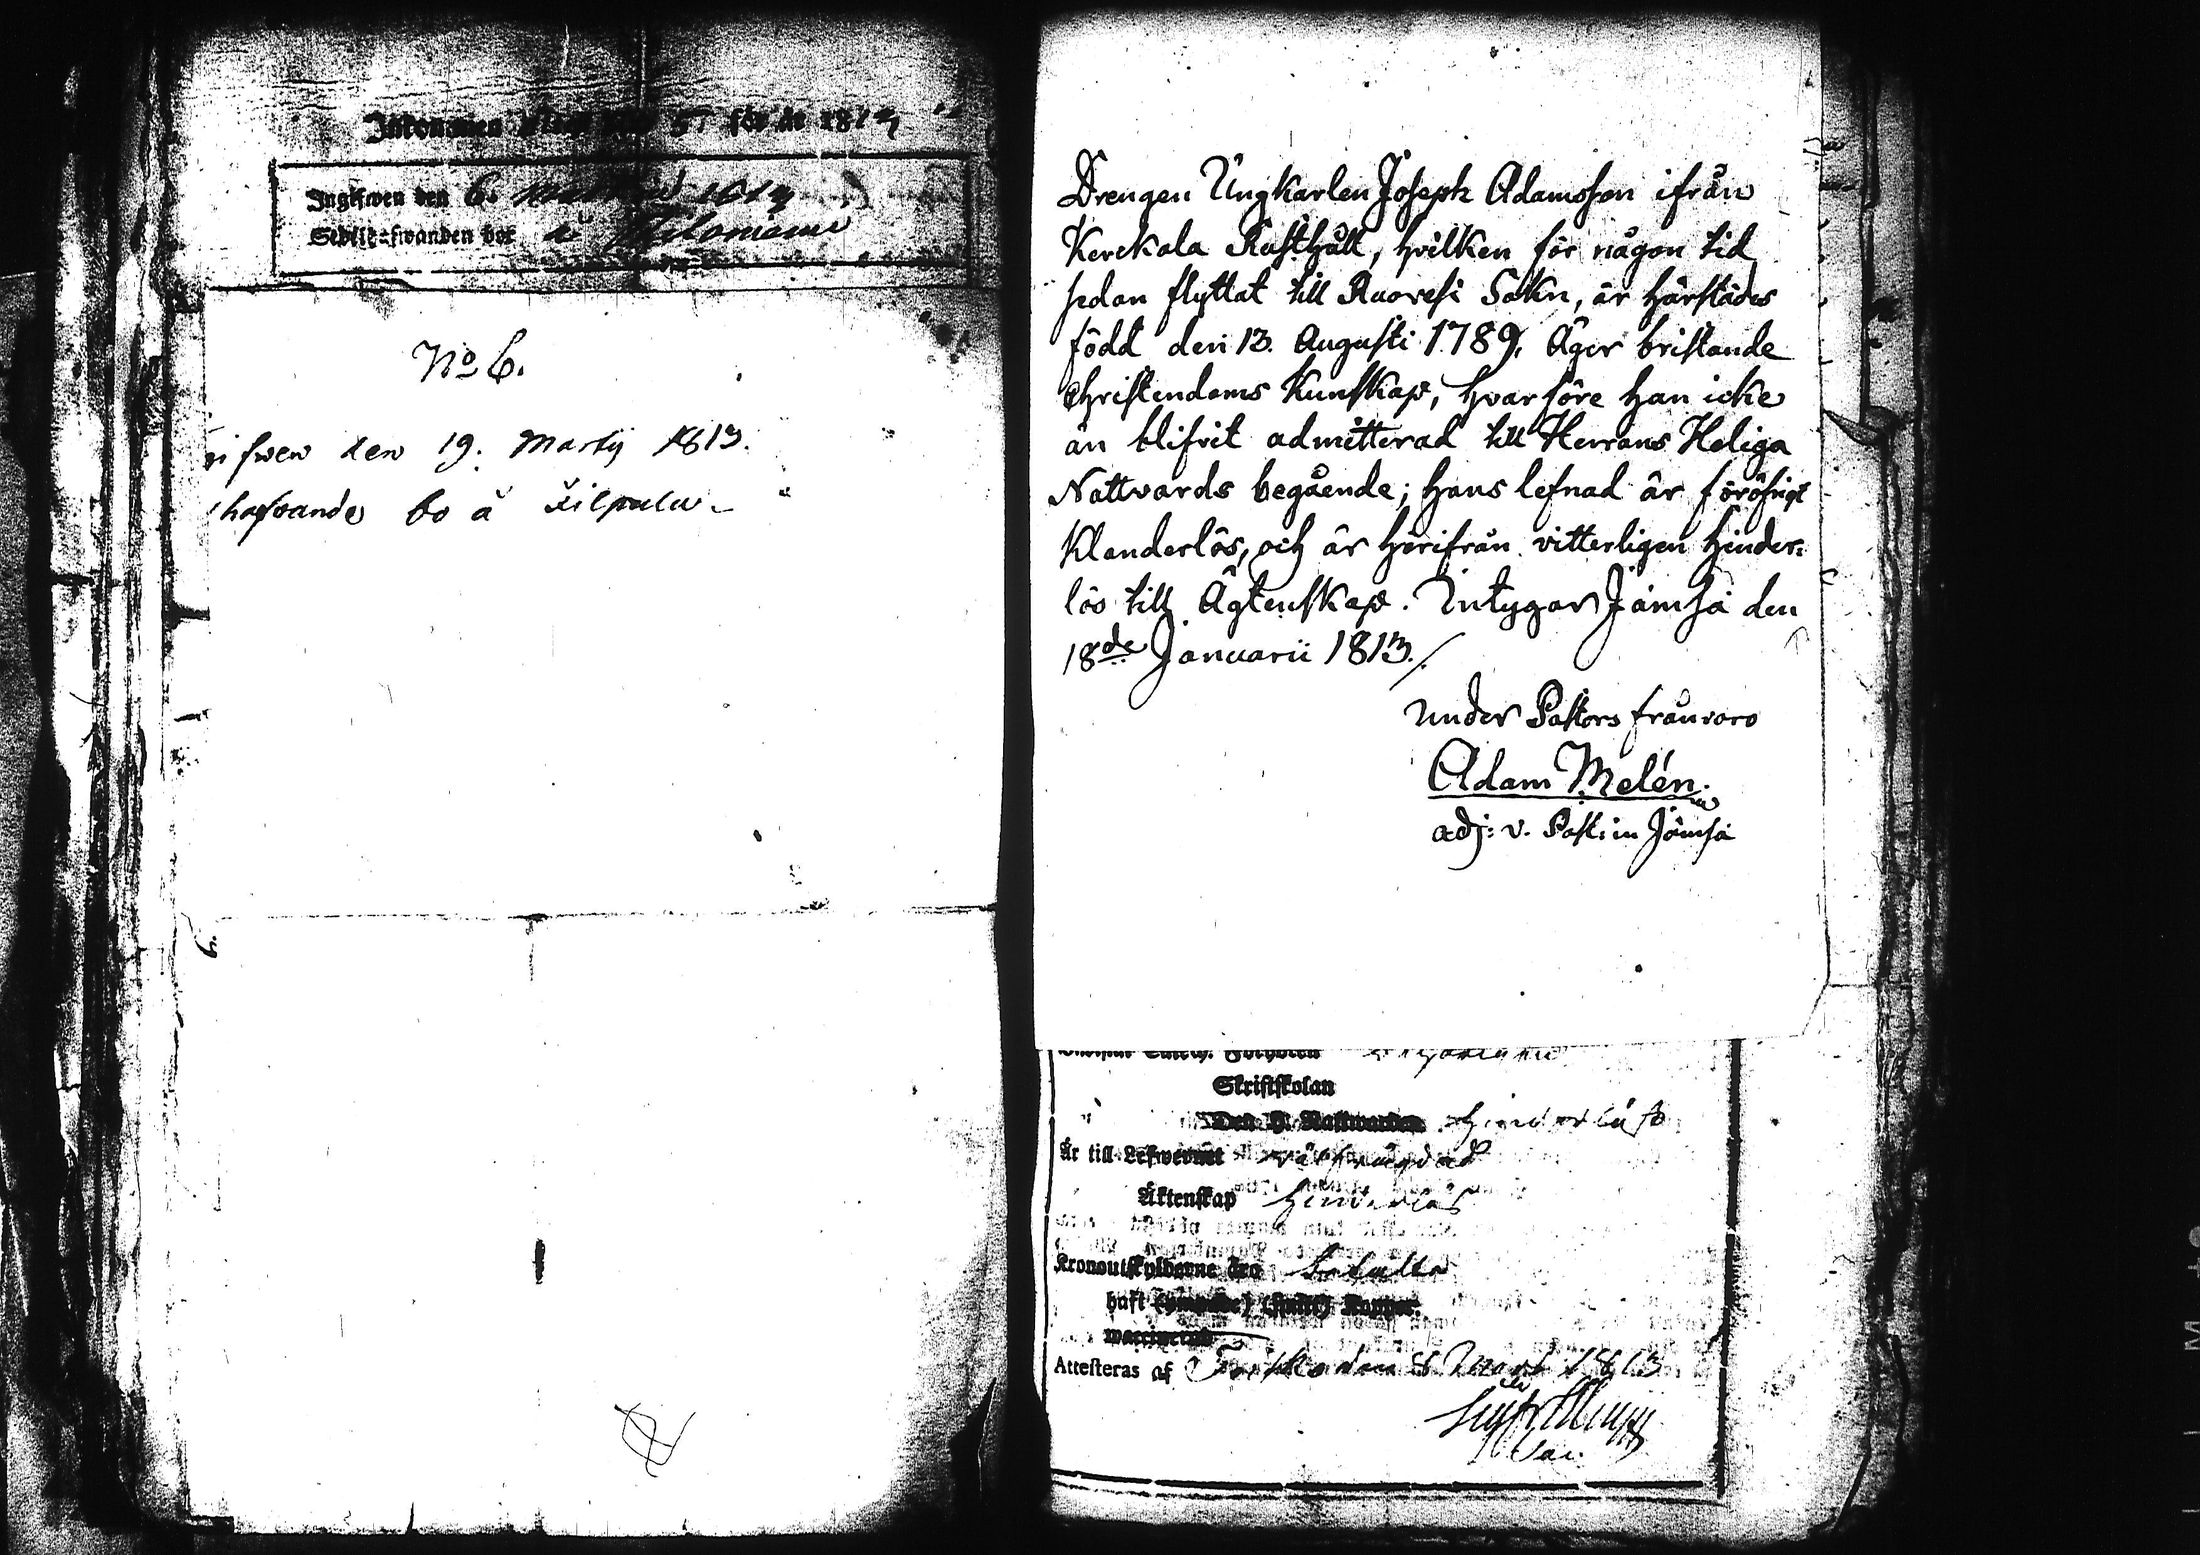 Inkommen N:o 5 för år 1813
Ingifwen den 6. 1813
Sedelhafwanden bor å
No 6.
ifwen den 19. Martij 1813.
hafvande bo å Kilpula
6.
Drengen Ungkarlen Joseph Adamsson ifrån
Kerckala Rusthåll, hvilken för någon tid
sedan flyttat till Ruovesi Sokn, är härstädes
född den 13. Augusti 1789. Äger bristande
Christendoms Kunskap, hvarföre han icke
än blifvit admitterad till Herrans Heliga
Nattvards begående; hans lefnad är föröfrigt
Klanderlös, och är härifrån vitterligen hinder:
lös till Ägtenskap. Intygar Jämsä den
18de Januarii 1813./.
under Pastors frånvaro
Adam Melén.
adj: v. Past: in Jämsä
Skriftskolan
Den H. Nattwarden
Är till Lefwernet välfrägdad
Äktenskap hinderlös
Kronoutskylderne äro betalte
haft Koppor.
waccinerad
Attesteras af den 8 Mart 1813